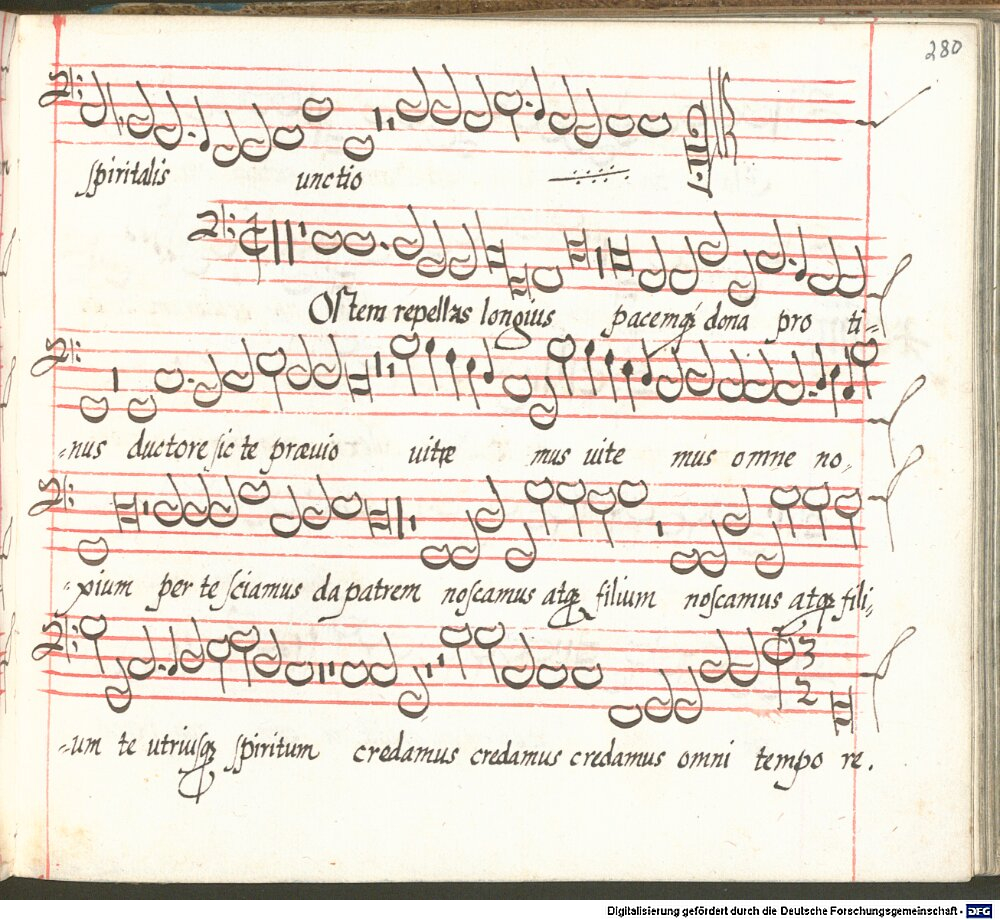 280
spiritalis unctio
Ostem repellas longius pacemq; dona pro ti=
=nus ductore sic te prævio uite mus uite mus omne no=
=xium per te sciamus da patrem noscamus atq; filium noscamus atq; fili=
=um te utriusq; spiritum credamus credamus credamus omni tempo re.
Digitalisierung gefördert durch die Deutsche Forschungsgemeinschaft - DFG